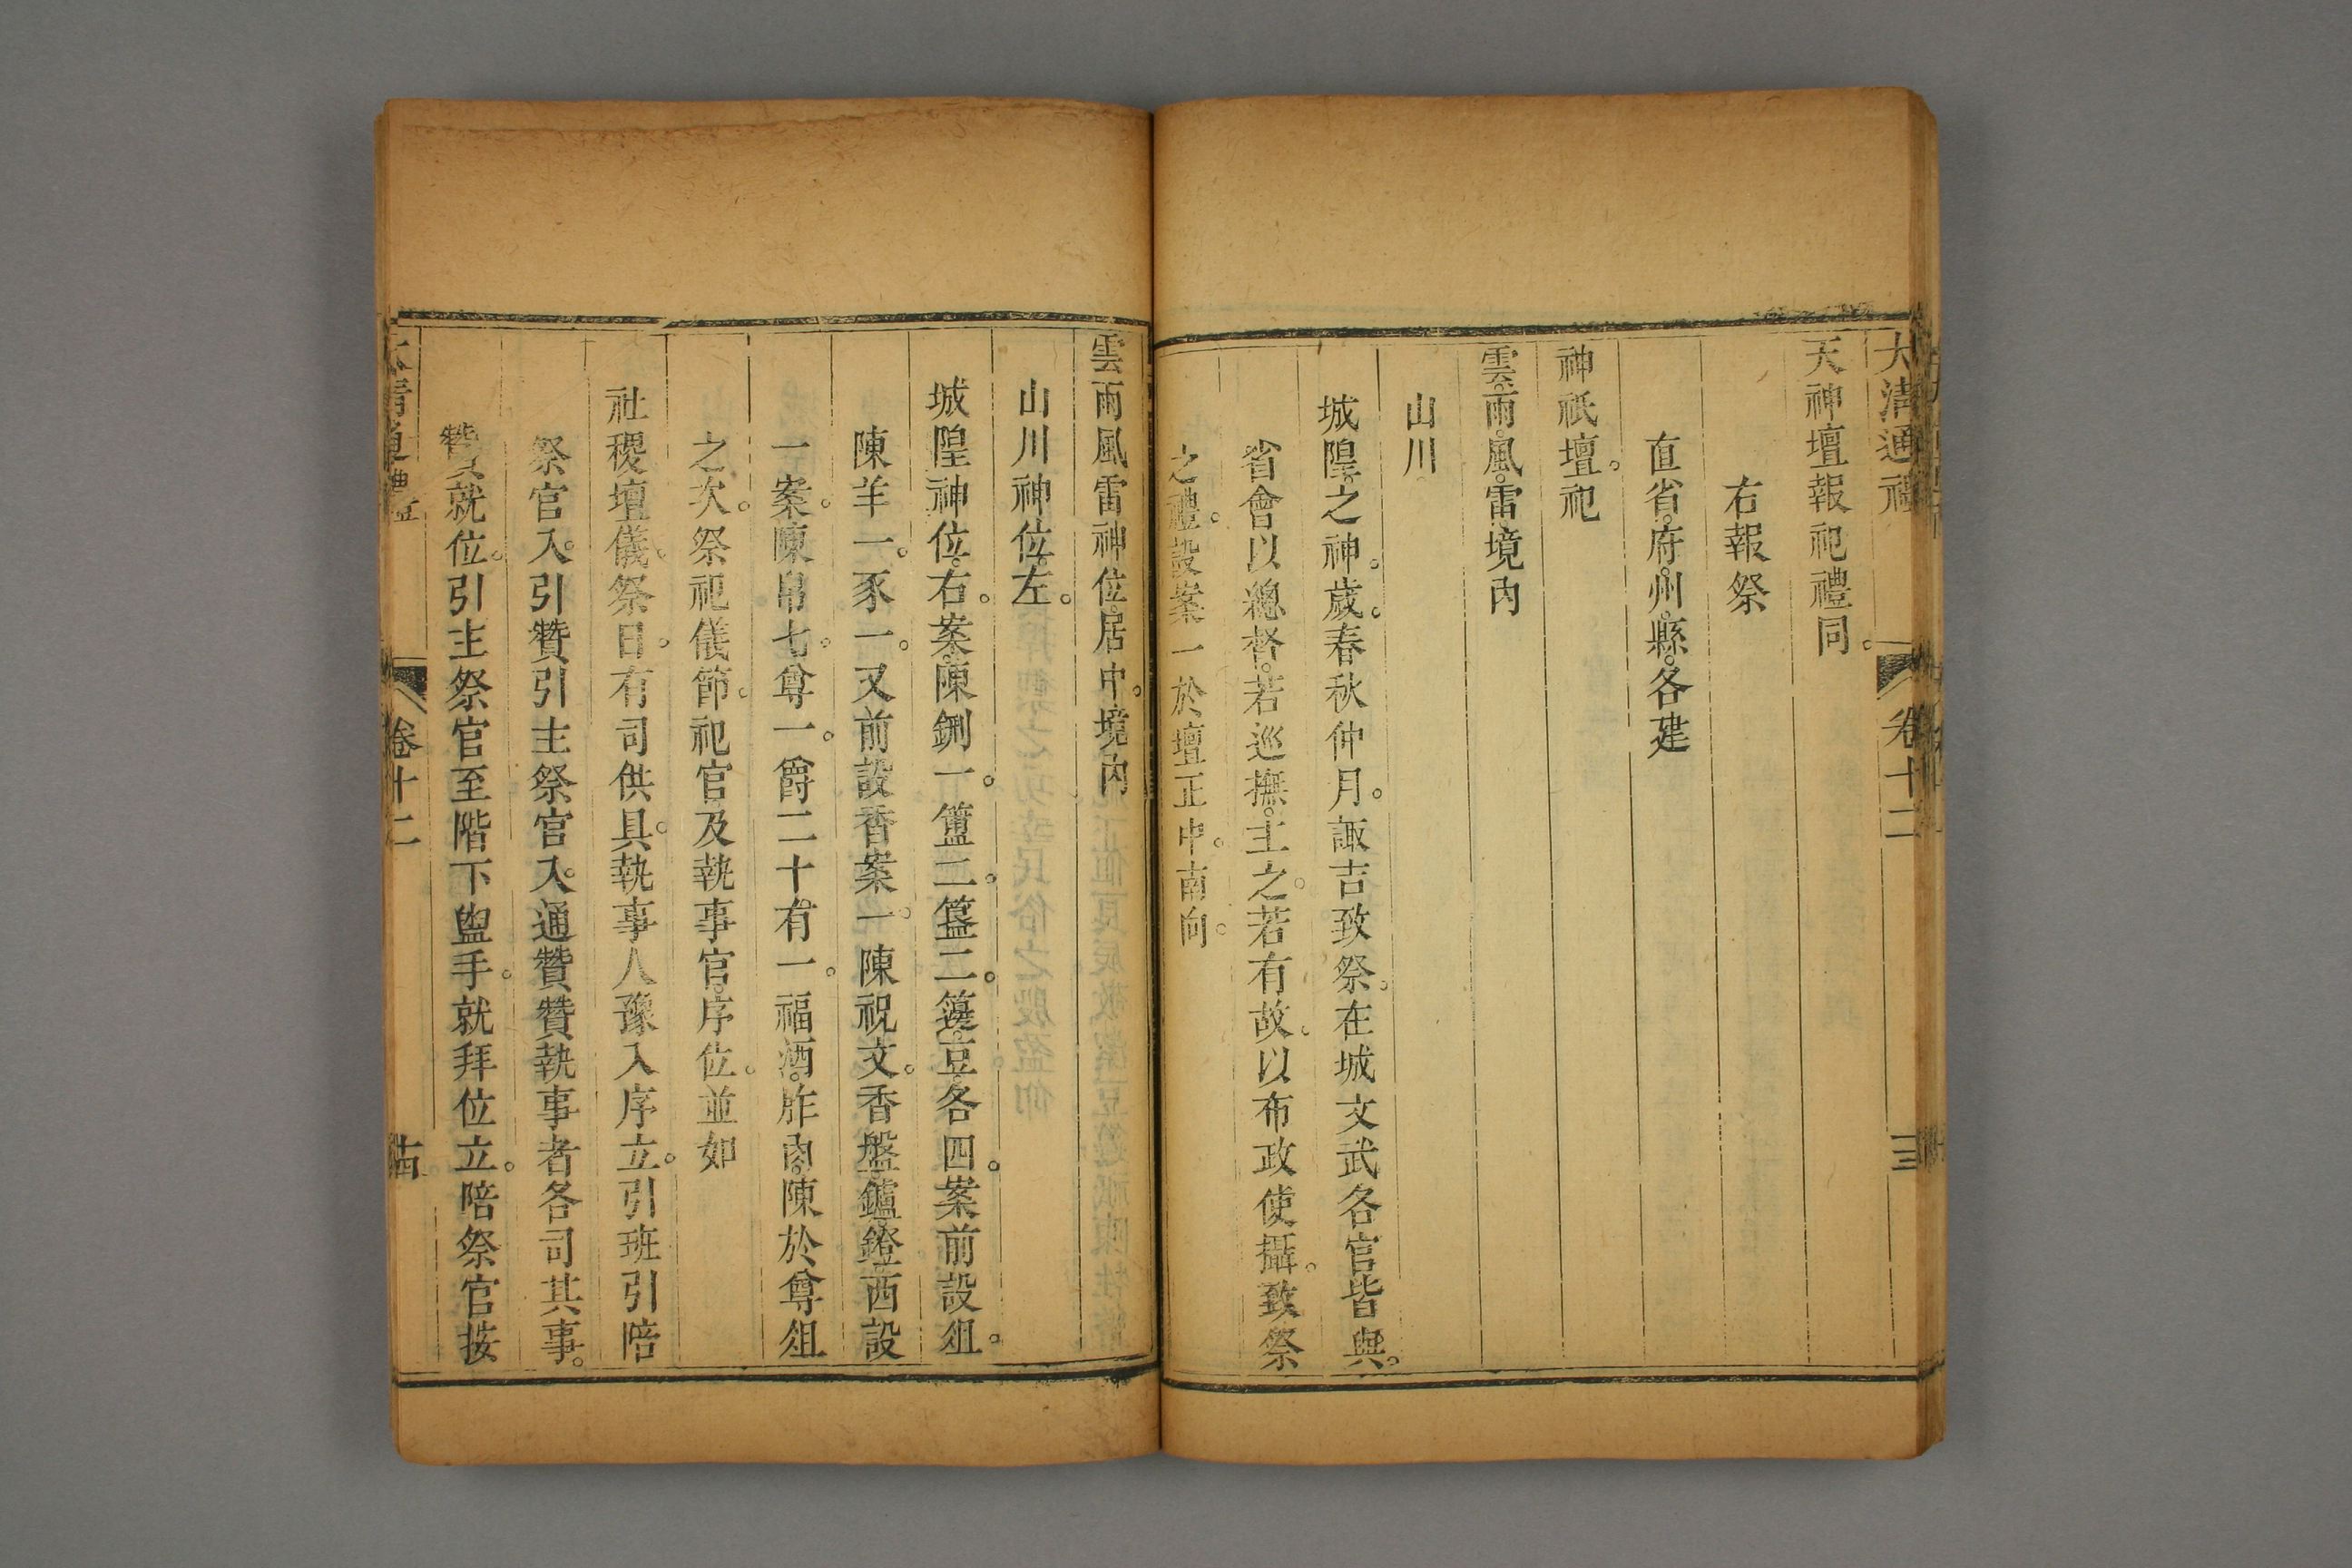 大清通禮 卷十二 三
天神壇報祀禮同。
右報祭
直省。府。州。縣。各建
神祇壇。祀
雲。雨。風。雷。境內
山川
城隍。之神。歲。春秋仲月。諏吉致祭。在城文武各官皆與。
省會以總督。若巡撫。主之。若有故。以布政使攝。致祭
之禮。設案一於壇正中。南向。
雲雨風雷神位。居中。境內
山川神位。左。
城隍神位。右。案。陳鉶一。簠二。簋二。籩。豆。各四。案前設俎。
陳羊一。豕一。又前設香案一。陳祝文。香盤。鑪。鐙。西設
一案。陳帛七。尊一。爵二十有一。福酒。胙肉。陳於尊俎
之次。祭祀儀節。祀官及執事官。序位。並如
社稷壇儀。祭日。有司供具。執事人豫入序立。引班引陪
祭官入。引贊引主祭官入。通贊贊執事者各司其事。
贊就位。引主祭官至階下盥手。就拜位立。陪祭官按
大清通禮 卷十二